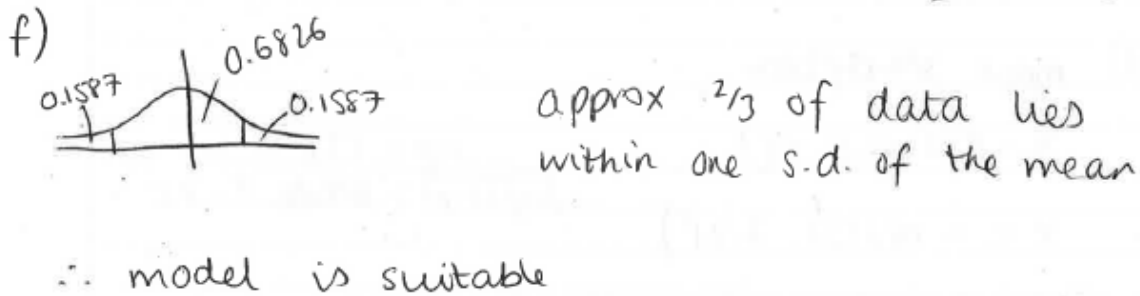 f)
0.6826
0.1587
0.1587
approx 2/3 of data lies
within one s.d. of the mean
∴ model is suitable